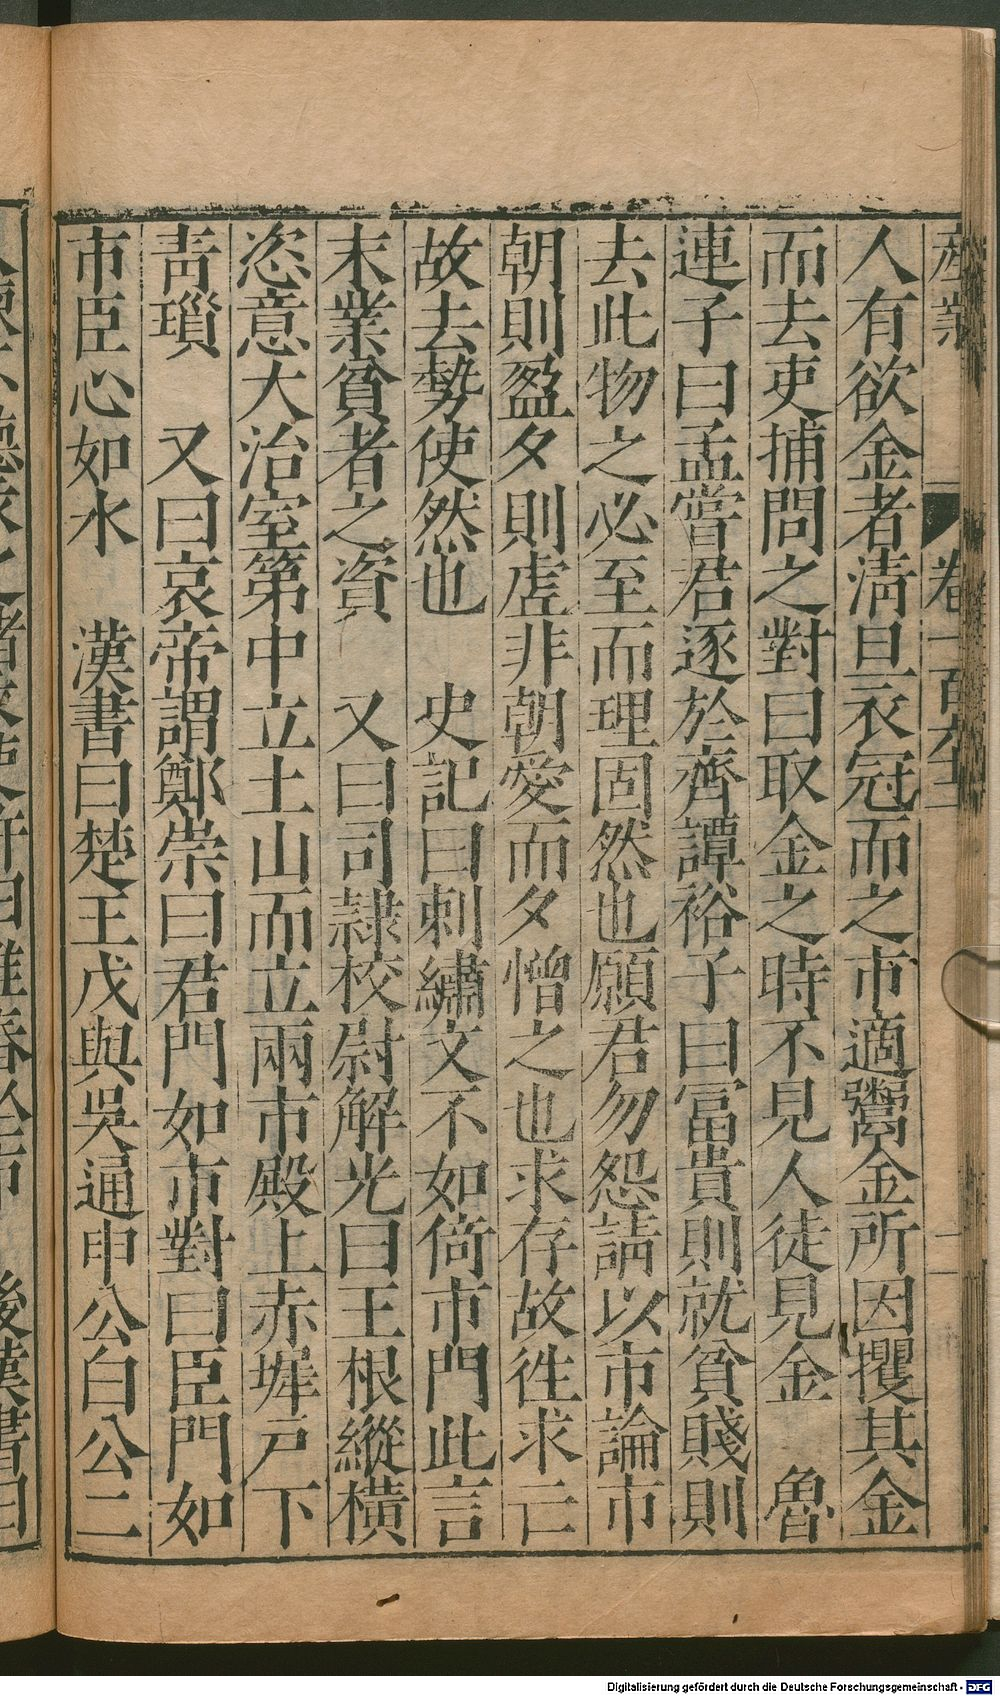 產業 卷一百九十一
人有欲金者淸旦衣冠而之市適鬻金所因攫其金
而去吏捕問之對曰取金之時不見人徒見金 魯
連子曰孟嘗君逐於齊譚裕子曰冨貴則就貧賤則
去此物之必至而理固然也願君勿怨請以市論市
朝則盈夕則虗非朝愛而夕憎之也求存故徃求亡
故去勢使然也 史記曰刺繡文不如倚市門此言
末業貧者之資 又曰司隷校尉解光曰王根縱橫
恣意大治室第中立土山而立兩市殿上赤墀戸下
靑瑣 又曰哀帝謂鄭崇曰君門如市對曰臣門如
市臣心如水 漢書曰楚王戊與吳通申公白公二
後漢書曰
Digitalisierung gefördert durch die Deutsche Forschungsgemeinschaft - DFG